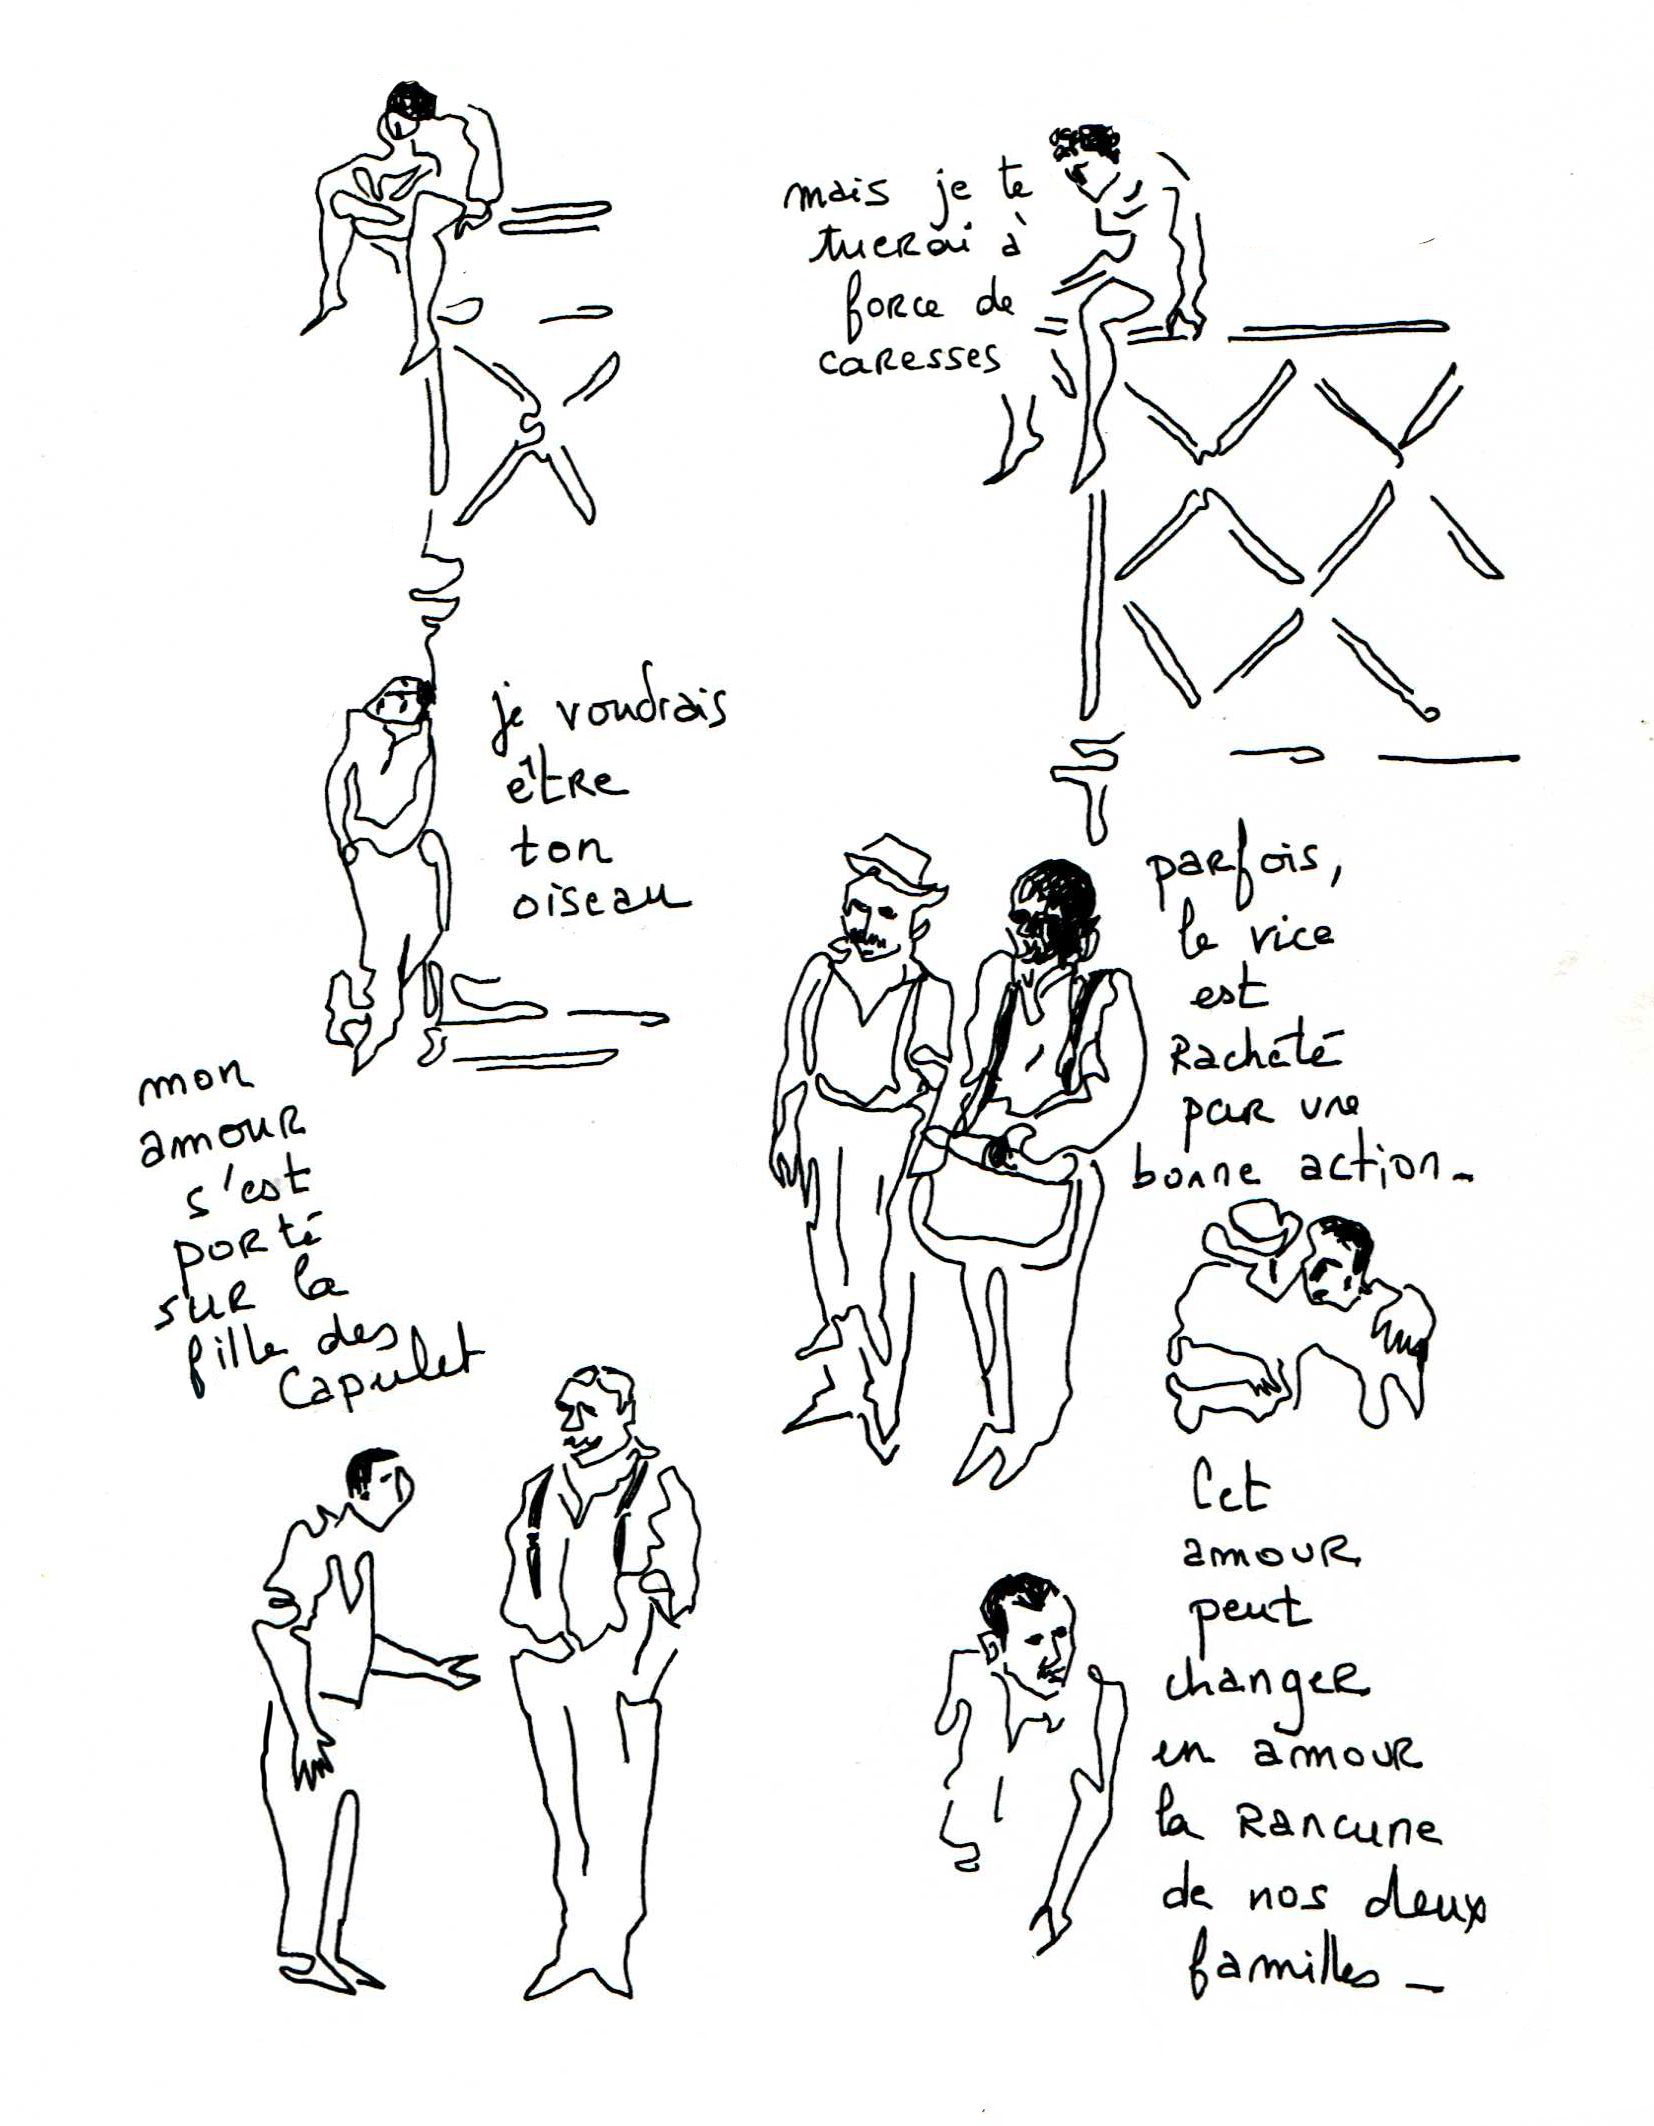 je voudrais
être
ton
oiseau
mais je te
tuerai à
force de
caresses
mon
amour
s'est
porté
sur la
fille des
Capulet
parfois,
le vice
est
Racheté
par une
bonne action_
Cet
amour
peut
changer
en amour
la Rancune
de nos deux
familles_